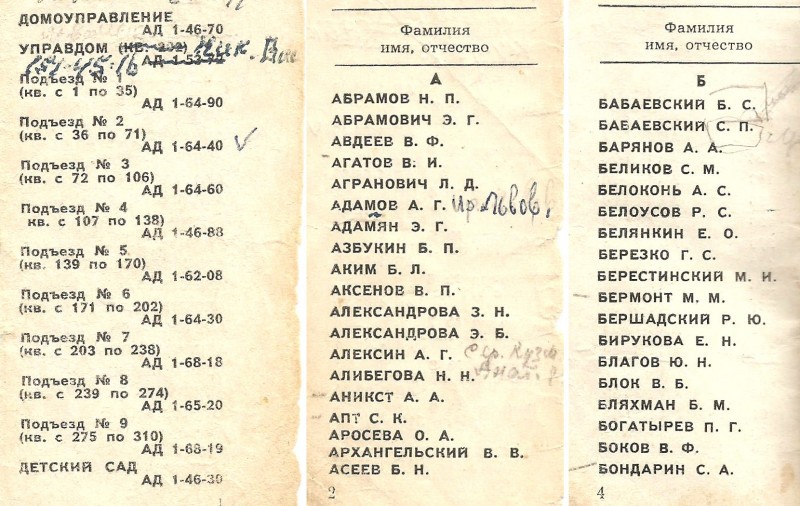 ДОМОУПРАВЛЕНИЕ
АД 1-46-70
УПРАВДОМ (КВ. 202) Ник.
АД 1-53-72
151-45-16
Подъезд № 1
(кв. с 1 по 35)
АД 1-64-90
Подъезд № 2
(кв. с 36 по 71)
АД 1-64-40
Подъезд № 3
(кв. с 72 по 106)
АД 1-64-60
Подъезд № 4
кв. с 107 по 138)
АД 1-46-88
Подъезд № 5
(кв. 139 по 170)
АД 1-62-08
Подъезд № 6
(кв. с 171 по 202)
АД 1-64-30
Подъезд № 7
(кв. с 203 по 238)
АД 1-68-18
Подъезд № 8
(кв. с 239 по 274)
АД 1-65-20
Подъезд № 9
(кв. с 275 по 310)
АД 1-68-19
ДЕТСКИЙ САД
АД 1-46-39
1
Фамилия
имя, отчество
А
АБРАМОВ Н. П.
АБРАМОВИЧ Э. Г.
АВДЕЕВ В. Ф.
АГАТОВ В. И.
АГРАНОВИЧ Л. Д.
АДАМОВ А. Г. Ир. Львов.
АДАМЯН Э. Г.
АЗБУКИН Б. П.
АКИМ Б. Л.
АКСЕНОВ В. П.
АЛЕКСАНДРОВА З. Н.
АЛЕКСАНДРОВА Э. Б.
АЛЕКСИН А. Г.
АЛИБЕГОВА Н. Н. Анат.
АНИКСТ А. А.
АПТ С. К.
АРОСЕВА О. А.
АРХАНГЕЛЬСКИЙ В. В.
АСЕЕВ Б. Н.
2
Фамилия
имя, отчество
Б
БАБАЕВСКИЙ Б. С.
БАБАЕВСКИЙ С. П.
БАРЯНОВ А. А.
БЕЛИКОВ С. М.
БЕЛОКОНЬ А. С.
БЕЛОУСОВ Р. С.
БЕЛЯНКИН Е. О.
БЕРЕЗКО Г. С.
БЕРЕСТИНСКИЙ М. И.
БЕРМОНТ М. М.
БЕРШАДСКИЙ Р. Ю.
БИРУКОВА Е. Н.
БЛАГОВ Ю. Н.
БЛОК В. Б.
БЛЯХМАН Б. М.
БОГАТЫРЕВ П. Г.
БОКОВ В. Ф.
БОНДАРИН С. А.
4